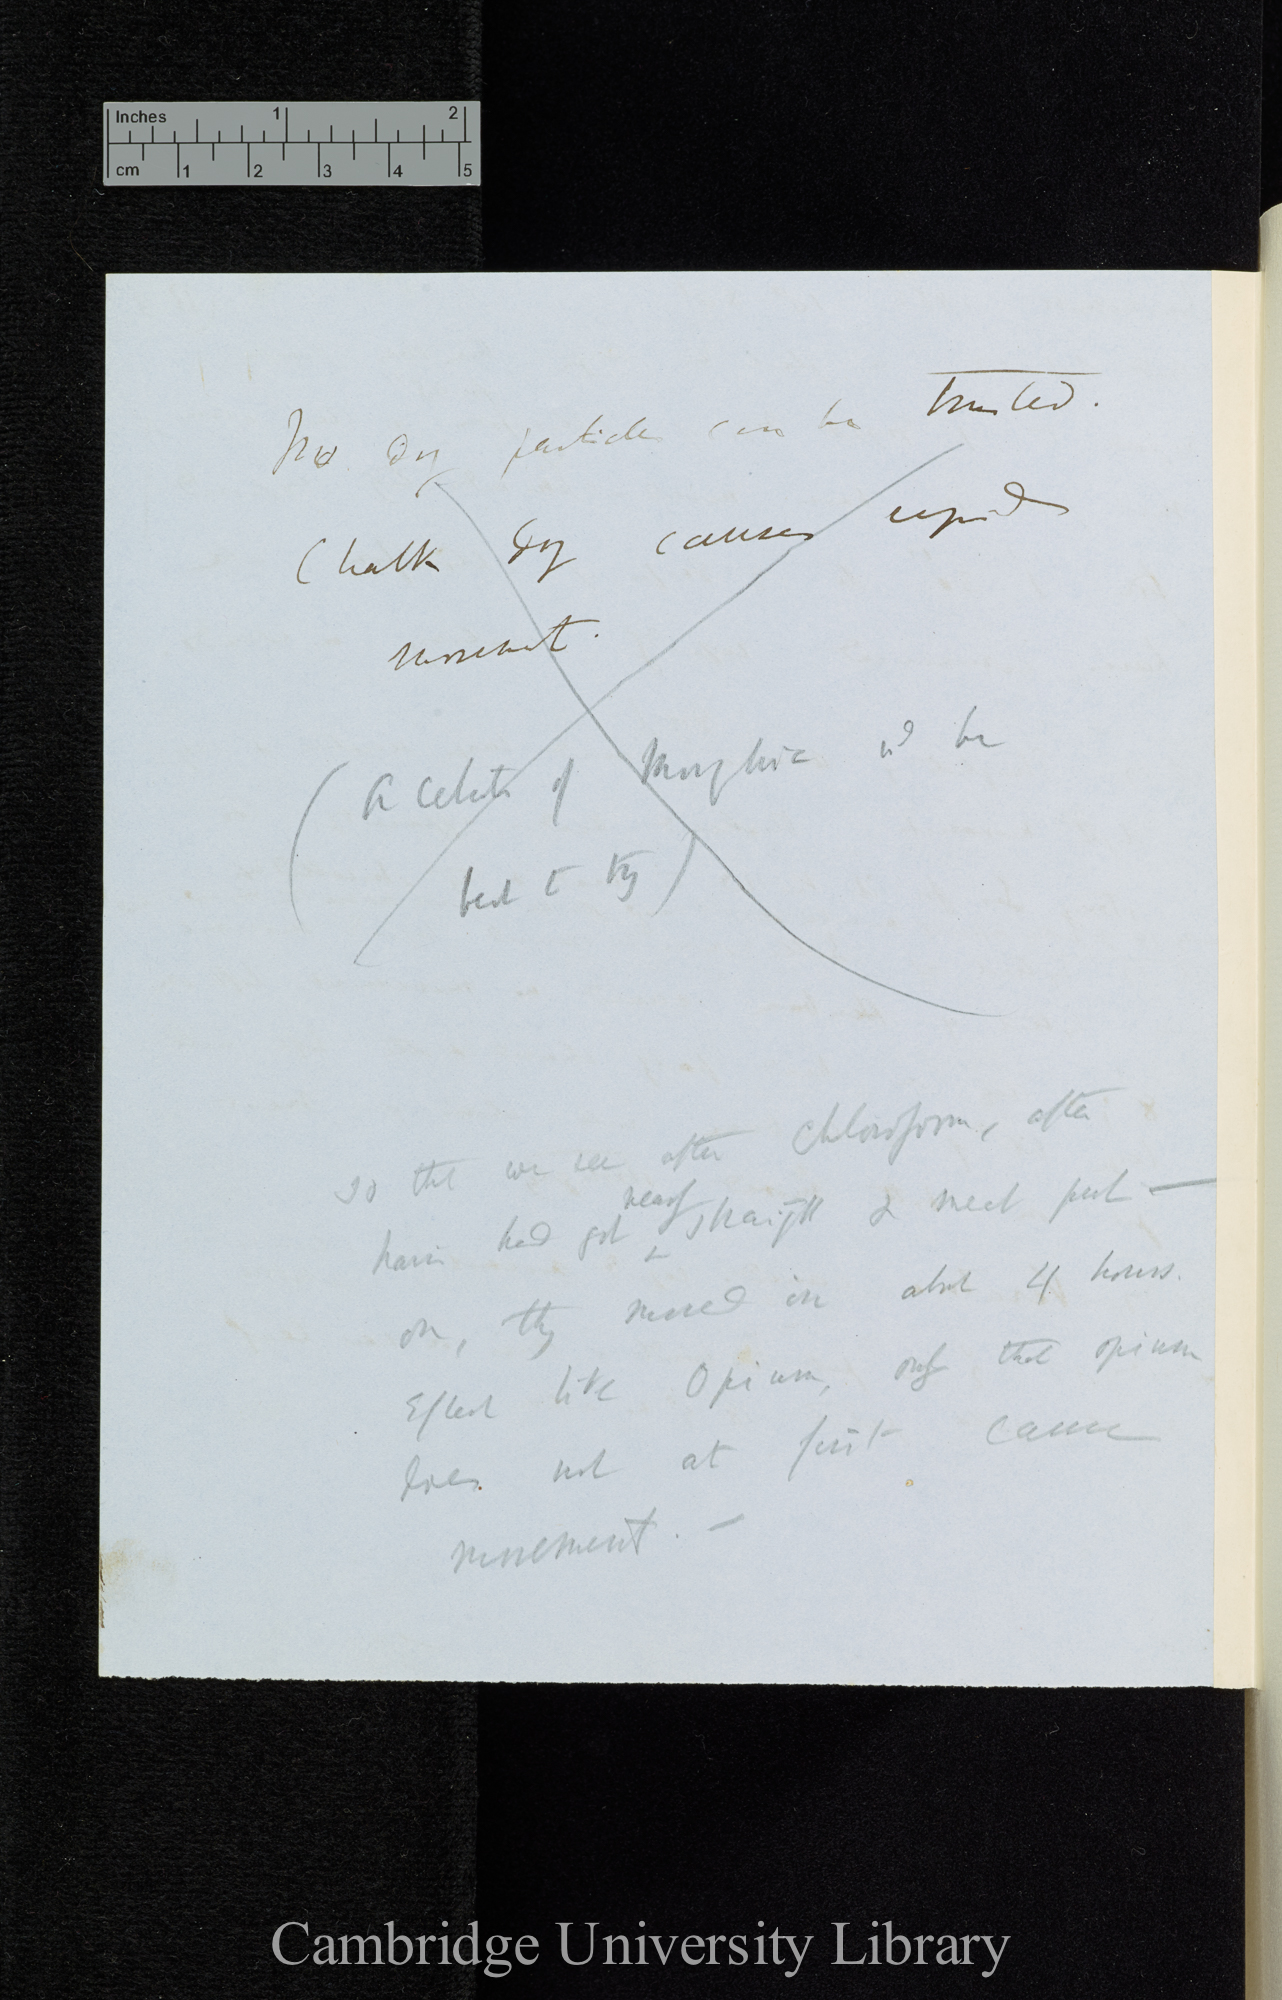 Inches 1 2
cm 1 2 3 4 5
No dry particles can be trusted.
Chalk dry causes rapid
movement.
(Acetate of Morphia wd be
best to try)
so that we see after Chloroform, after
nearly
hairs had got straight & meat put —
on, they moved in about 4 hours.
Effect like Opium, only that opium
does not at first cause
movement. —
Cambridge University Library